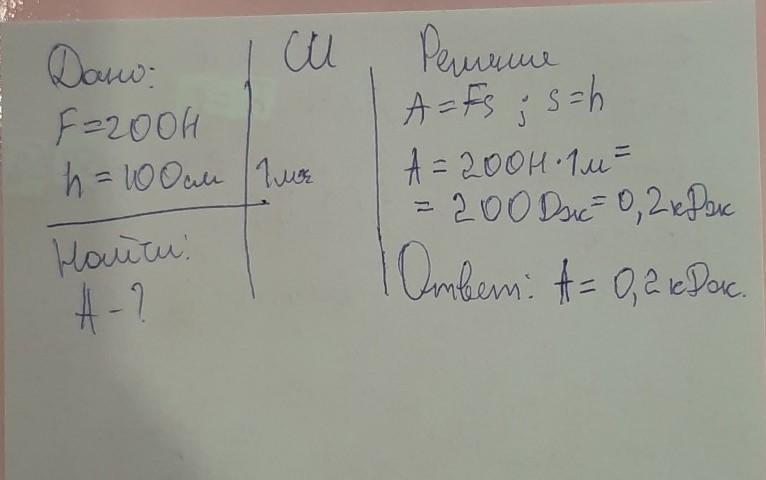 Дано:
F=200Н
h=100см
Найти:
A-?
СИ
1м
Решение
A=Fs ; s=h
A=200Н·1м=
=200Дж=0,2кДж
Ответ: A=0,2кДж.